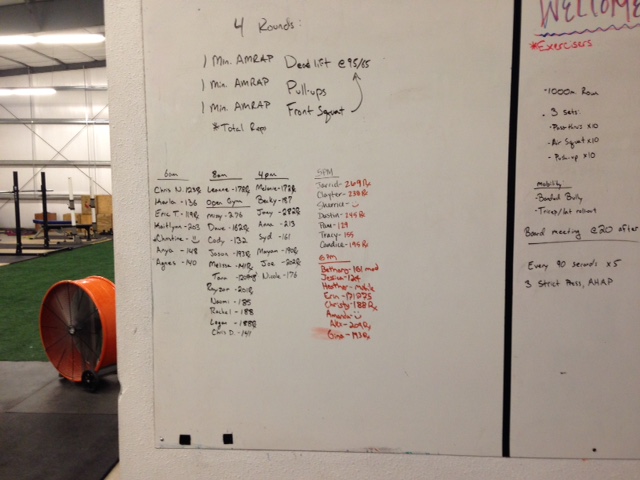 4 Rounds:
1 Min. AMRAP Deadlift @95/65
1 Min. AMRAP Pull-ups
1 Min. AMRAP Front Squat
*Total Reps
6am
Chris N. 123R
- 136
Eric T. - 119R
Kaitlynn - 203
Christine -
Anya - 148
Agnes - 140
8am
Leanne - 178R
Open Gym
Missy - 276
Dave - 182R
Cody - 132
Susan - 193R
Melissa
Tara
Rayzor - 201R
Naomi - 185
Rachel - 188
Logan - 188R
Chris D. - 141
4pm
Melanie - 172R
Becky - 187
Jony - 282R
Anna - 213
Syd - 161
Mayan - 190R
Joe - 202R
Nicole - 176
5PM
Jarrid - 269Rx
Clayter - 230Rx
Sherrie -
Dustin - 245Rx
Pam - 129
Tracy - 155
Candice - 195Rx
6PM
Bethany - 181 mod
Jessica - 124
Heather - mobile
Erin - 171@75
Christy - 188Rx
Amanda
Alex - 209Rx
Gina - 193Rx
WELCOME
*Exercisers
- 1000m Row
- 3 sets:
- Pass-thrus x10
- Air Squat x10
- Push-up x10
Mobility
- Banded Bully
- Tricep/lat rollout
Board meeting @ 720 after
Every 90 seconds x5
3 Strict Press, AHAP